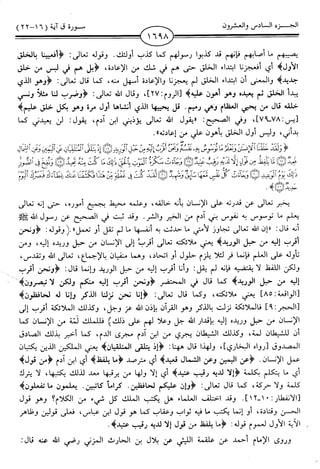 الجزء السادس والعشرون
١٦٩٨
سورة ق آية (١٦-٢٢)
يصيبهم ما أصابهم فإنهم قد كذبوا رسولهم كما كذب أولئك. وقوله تعالى: ﴿أفعيينا بالخلق
الأول﴾ أي أفعجزنا ابتداء الخلق حتى هم في شك من الإعادة، ﴿بل هم في لبس من خلق
جديد﴾ والمعنى أن ابتداء الخلق لم يعجزنا والإعادة أسهل منه، كما قال تعالى: ﴿وهو الذي
يبدأ الخلق ثم يعيده وهو أهون عليه﴾ [الروم:٢٧]، وقال الله تعالى: ﴿وضرب لنا مثلاً ونسي
خلقه قال من يحيي العظام وهي رميم. قل يحييها الذي أنشأها أول مرة وهو بكل خلق عليم﴾
[يس:٧٨،٧٩]. وفي الصحيح: «يقول الله تعالى يؤذيني ابن آدم، يقول: لن يعيدني كما
بدأني، وليس أول الخلق بأهون علي من إعادته».
يخبر تعالى عن قدرته على الإنسان بأنه خالقه، وعلمه محيط بجميع أموره، حتى إنه تعالى
يعلم ما توسوس به نفوس بني آدم من الخير والشر. وقد ثبت في الصحيح عن رسول الله ﷺ
أنه قال: «إن الله تعالى تجاوز لأمتي ما حدثت به أنفسها ما لم تقل أو تعمل». وقوله: ﴿ونحن
أقرب إليه من حبل الوريد﴾ يعني ملائكته تعالى أقرب إلى الإنسان من حبل وريده إليه، ومن
تأوله على العلم فإنما فر لئلا يلزم حلول أو اتحاد، وهما منفيان بالإجماع، تعالى الله وتقدس،
ولكن اللفظ لا يقتضيه فإنه لم يقل: وأنا أقرب إليه من حبل الوريد وإنما قال: ﴿ونحن أقرب
إليه من حبل الوريد﴾ كما قال في المحتضر ﴿ونحن أقرب إليه منكم ولكن لا تبصرون﴾
[الواقعة:٨٥] يعني ملائكته، وكما قال تعالى: ﴿إنا نحن نزلنا الذكر وإنا له لحافظون﴾
[الحجر:٩] فالملائكة نزلت بالذكر وهو القرآن بإذن الله عز وجل، وكذلك الملائكة أقرب إلى
الإنسان من حبل وريده إليه بإقدار الله جل وعلا لهم على ذلك، فللملك لمة من الإنسان كما
أن للشيطان لمة، وكذلك الشيطان يجري من ابن آدم مجرى الدم كما أخبر بذلك الصادق
المصدوق [رواه البخاري]، ولهذا قال ههنا: ﴿إذ يتلقى المتلقيان﴾ يعني الملكين الذين يكتبان
عمل الإنسان. ﴿عن اليمين وعن الشمال قعيد﴾ أي مترصد ﴿ما يلفظ﴾ أي ابن آدم ﴿من قول﴾
أي ما يتكلم بكلمة ﴿إلا لديه رقيب عتيد﴾ أي إلا ولها من يرقبها معد لذلك يكتبها، لا يترك
كلمة ولا حركة، كما قال تعالى: ﴿وإن عليكم لحافظين. كراماً كاتبين. يعلمون ما تفعلون﴾
[الانفطار:١٠-١٢]. وقد اختلف العلماء هل يكتب الملك كل شيء من الكلام؟ وهو قول
الحسن وقتادة، أو إنما يكتب ما فيه ثواب وعقاب كما هو قول ابن عباس، فعلى قولين وظاهر
الآية الأول لعموم قوله: ﴿ما يلفظ من قول إلا لديه رقيب عتيد﴾.
وروى الإمام أحمد عن علقمة الليثي عن بلال بن الحارث المزني رضي الله عنه قال: